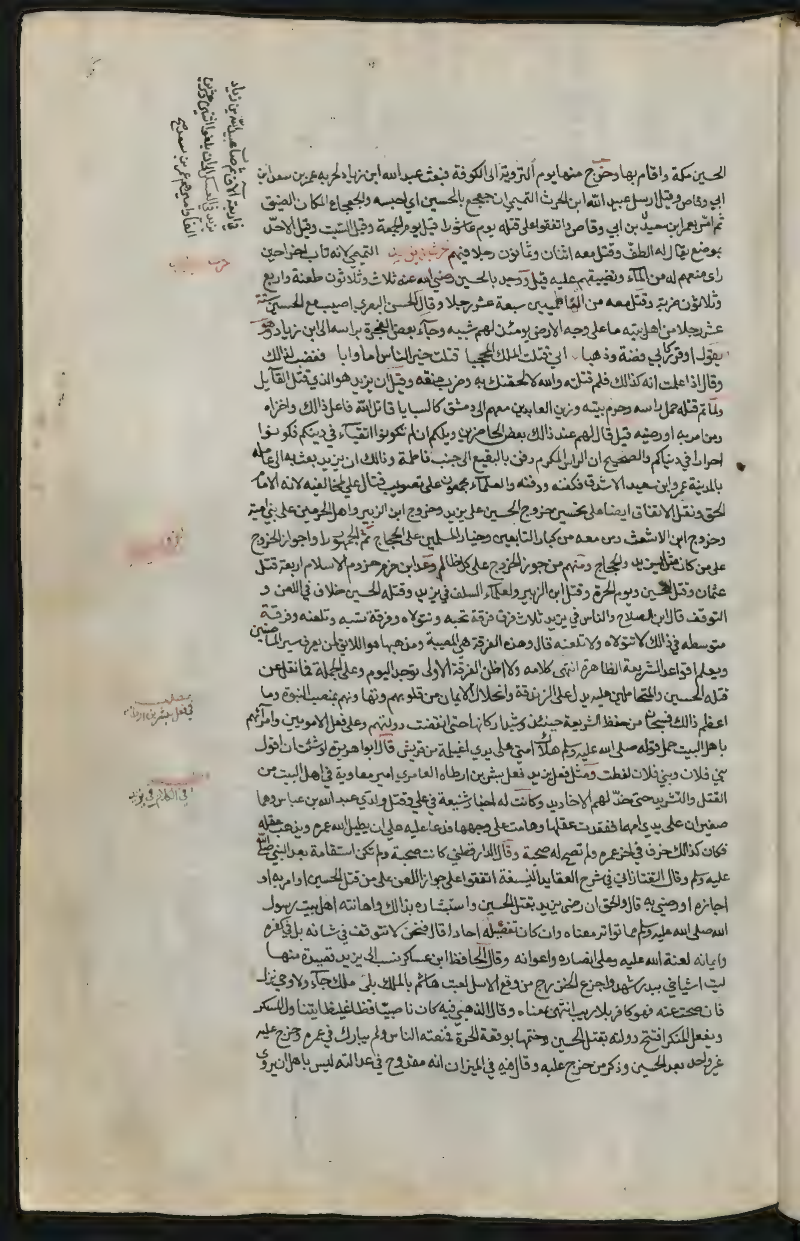 الحسين مكة واقام بها وخرج منها يوم التروية الى الكوفة فبعث عبد الله ابن زياد لحربه عمر بن سعد ابن
ابي وقاص وقيل ارسل عبيد الله ابن الحرث التميمي ان جعجع بالحسين اي احبسه والجعجاع المكان الضيق
ثم امر بعمر ابن سعيد بن ابي وقاص واتفقوا على قتله يوم عاشورا قيل يوم الجمعة وقيل السبت وقيل الاحد
بموضع يقال له الطف وقتل معه اثنان وثمانون رجلا فيهم حرث بن يزيد التميمي لانه تاب اخرا حين
راى منعهم له من الماء وتضييقهم عليه قيل ووجد بالحسين رضي الله عنه ثلاث وثلاثون طعنة واربع
وثلاثون ضربة وقتل معه من الفاطميين سبعة عشر رجلا وقال الحسن البصري اصيب مع الحسين ستة
عشر رجلا من اهل بيته ما على وجه الارض يومئذ لهم شبيه وجاء بعض الفجرة براسه الى ابن زياد وهو
يقول اوقر ركابي فضة وذهبا اني قتلت الملك المحجبا قتلت خير الناس اما وابا فغضب لذالك
وقال اذا علمت انه كذالك فلم قتلته والله لالحقنك به وضرب عنقه وقيل ان يزيد هو الذي قتل القايل
ولما تم قتله حمل راسه وحرم بيته وزين العابدين معهم الى دمشق كالسبايا قاتل الله فاعل ذالك واخزاه
ومن امر به او رضيه قيل قال لهم عند ذالك بعض الحاضرين ويلكم ان لم تكونوا اتقياء في دينكم فكونوا
احرارا في دنياكم والصحيح ان الراس المكرم دفن بالبقيع الى جنب فاطمة وذالك ان يزيد بعث به الى عامله
بالمدينة عمرو ابن سعيد الاشدق فكفنه ودفنه والعلماء مجمعون على تصويب قتال علي لمخالفيه لانه الامام
الحق ونقل الاتفاق ايضا على تحسين خروج الحسين على يزيد وخروج ابن الزبير واهل الحرمين على بني امية
وخروج ابن الاشعث ومن معه من كبار التابعين وخيار المسلمين على الحجاج ثم الجمهور راوا جواز الخروج
على من كان مثل يزيد والحجاج ومنهم من جوز الخروج على كل ظالم وعد ابن حزم خروم الاسلام اربعة قتل
عثمان وقتل الحسين ويوم الحرة وقتل ابن الزبير ولعلماء السلف في يزيد وقتله الحسين خلاف في اللعن و
التوقف قال ابن الصلاح والناس في يزيد ثلاث فرق فرقة تحبه وتتولاه وفرقة تسبه وتلعنه وفرقة
متوسطه في ذالك لا تتولاه ولا تلعنه قال وهذه الفرقة هي المصيبة ومذهبها هو اللائق لمن يعرف سير الماضين
ويعلم قواعد الشريعة الظاهرة انتهى كلامه ولا اظن الفرقة الاولى توجد اليوم وعلى الجملة فما نقل عن
قتلة الحسين والمتحاملين عليه يدل على الزندقة وانحلال الايمان من قلوبهم وتهاونهم بمنصب النبوة وما
اعظم ذالك فسبحان من حفظ الشريعة حينئذ وشيد اركانها حتى انقضت دولتهم وعلى فعل الامويين وامرائهم
باهل البيت حمل قوله صلى الله عليه وسلم هلاك امتي على يدي اغيلمة من قريش قال ابو هريرة لو شئت ان اقول
بني فلان وبني فلان لفعلت ومثل فعل يزيد فعل بشر بن ارطاه العامري امير معاوية في اهل البيت من
القتل والتشريد حتى خد لهم الاخاديد وكانت له اخبار شنيعة في علي وقتل ولدي عبد الله بن عباس وهما
صغيران على يدي امهما ففقدت عقلها وهامت على وجهها فدعا عليه علي ان يطيل الله عمره ويذهب عقله
فكان كذالك خرف في اخر عمره ولم تصح له صحبة وقال الدارقطني كانت صحبة ولم تكن استقامة بعد النبي صلى الله
عليه وسلم وقال التفتازاني في شرح العقايد النسفية اتفقوا على جواز اللعن على من قتل الحسين او امر به او
اجازه او رضي به قال والحق ان رضى يزيد بقتل الحسين واستبشاره بذالك واهانته اهل بيت رسول
الله صلى الله عليه وسلم مما تواتر معناه وان كان تفصيله احادا قال فنحن لا نتوقف في شانه بل في كفره
وايمانه لعنة الله عليه وعلى انصاره واعوانه وقال الحافظ ابن عساكر نسب الى يزيد قصيدة منها
ليت اشياخي ببدر شهدوا جزع الخزرج من وقع الاسل لعبت هاشم بالملك بلا ملك جاء ولا وحي نزل
فان صحت عنه فهو كافر بلا ريب انتهى بمعناه وقال الذهبي فيه كان ناصبيا فظا غليظا يتناول المسكر
ويفعل المنكر افتتح دولته بقتل الحسين وختمها بوقعة الحرة فمقته الناس ولم يبارك في عمره وخرج عليه
غير واحد بعد الحسين وذكر من خرج عليه وقال فيه في الميزان انه مقدوح في عدالته ليس باهل ان يروى
في فعل بشر بن ارطاه
في الكلام في يزيد